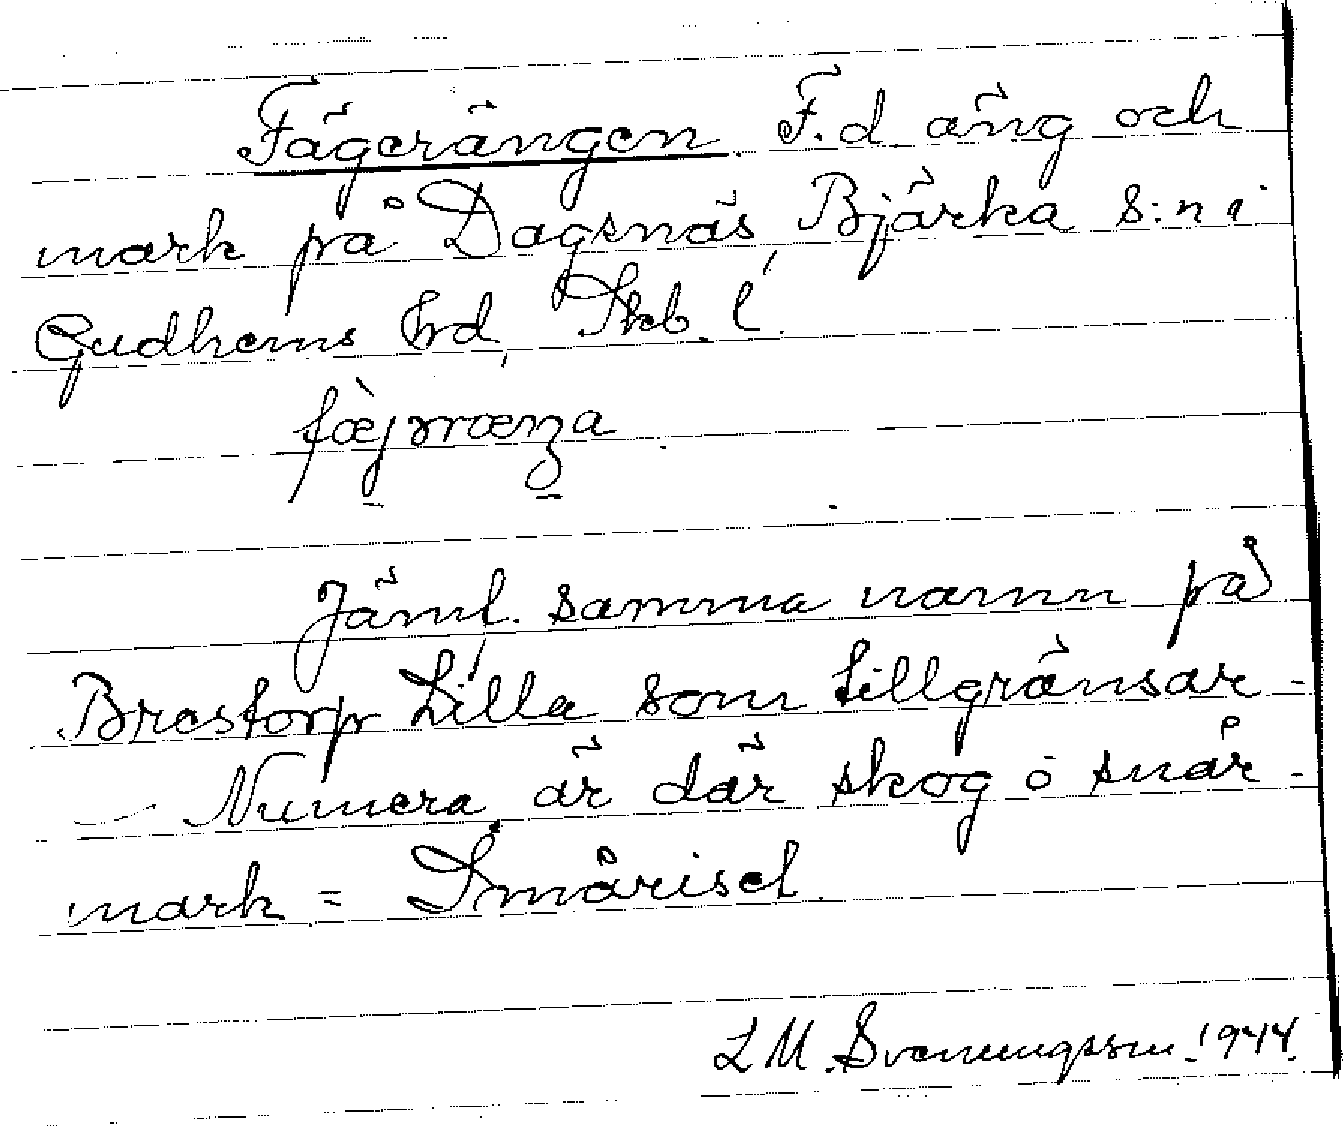 Fägerängen. F.d. äng och
mark på Dagsnäs, Bjärka s:n i
Gudhems hrd, Skb. l.
fæ̀jrræŋa
Jämf. samma namn på
Brestorp Lilla som tillgränsar.
— Numera är där skog o snår-
mark = Smårisel.
L M. Svenungsson 1944.